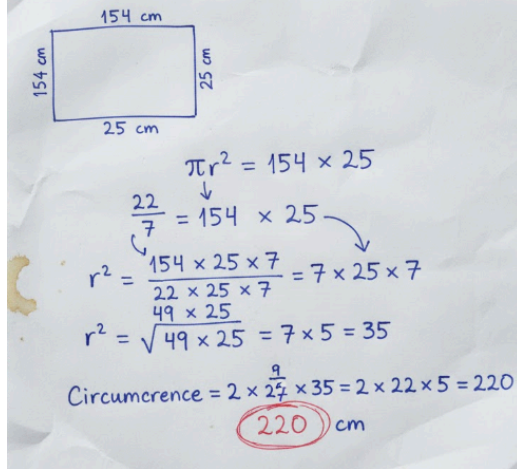 154 cm
154 cm
25 cm
25 cm
πr² = 154 × 25
22/7 = 154 × 25
r² = (154 × 25 × 7)/(22 × 25 × 7) = 7 × 25 × 7
49 × 25
r² = √(49 × 25) = 7 × 5 = 35
Circumcrence = 2 × × 35 = 2 × 22 × 5 = 220
220 cm